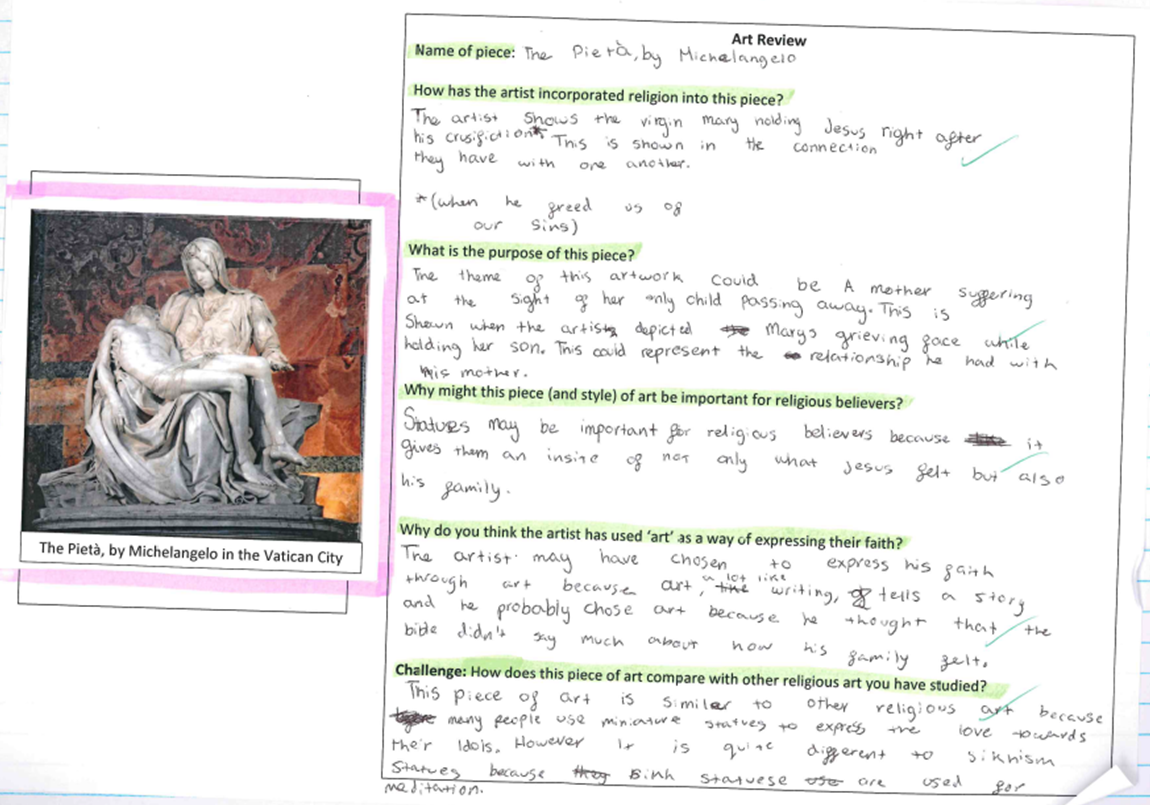 Art Review
Name of piece: The Pietà, by Michelangelo
How has the artist incorporated religion into this piece?
The artist shows the virgin mary holding Jesus right after
his crusifiction* This is shown in the connection
they have with one another.
*(when he freed us of
our sins)
What is the purpose of this piece?
The theme of this artwork could be A mother suffering
at the sight of her only child passing away. This is
Shown when the artist depicted Marys grieving face while
holding her son. This could represent the relationship he had with
his mother.
Why might this piece (and style) of art be important for religious believers?
Statues may be important for religious believers because it
gives them an insite of not only what Jesus felt but also
his family.
Why do you think the artist has used 'art' as a way of expressing their faith?
The artist may have chosen to express his faith
through art because art, a lot like writing, tells a story
and he probably chose art because he thought that the
bible didn't say much about how his family felt.
Challenge: How does this piece of art compare with other religious art you have studied?
This piece of art is similar to other religious art because
many people use miniature statues to express the love towards
their Idols. However It is quite different to Sikhism
Statues because Sikh statuese are used for
meditation.
The Pietà, by Michelangelo in the Vatican City